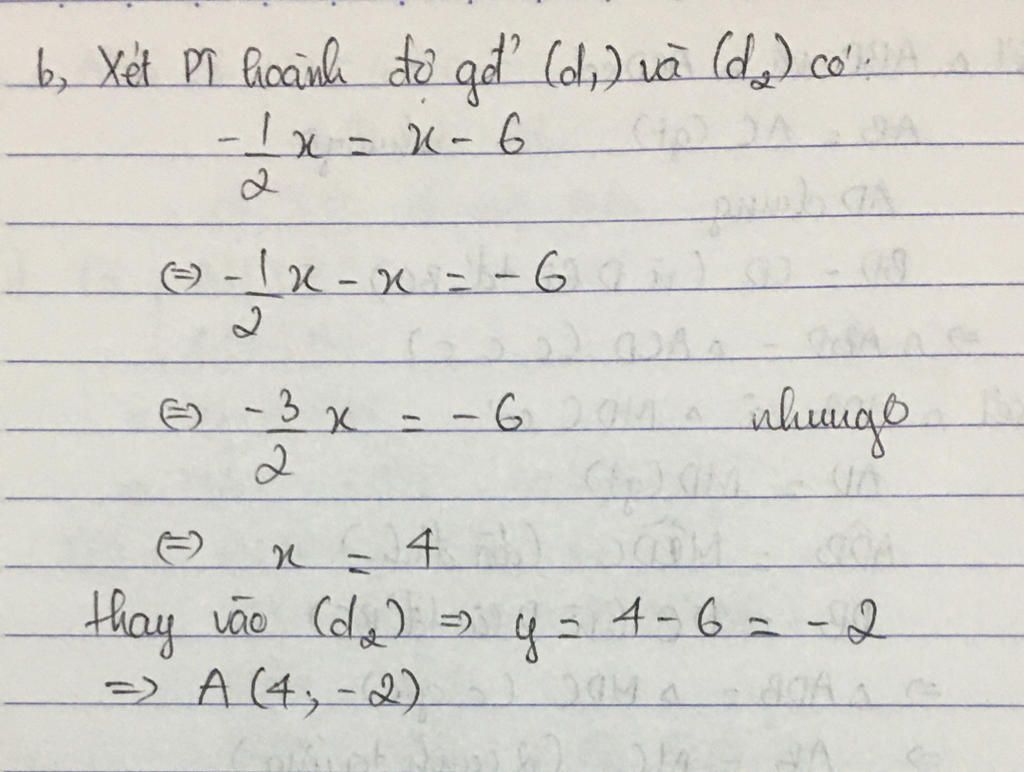 b, Xét PT hoành độ gđ' (d₁) và (d₂) có:
-1/2 x = x - 6
⇔ -1/2 x - x = -6
⇔ -3/2 x = -6 nhungo
⇔ x = 4
thay vào (d₂) ⇒ y = 4 - 6 = -2
⇒ A (4; -2)